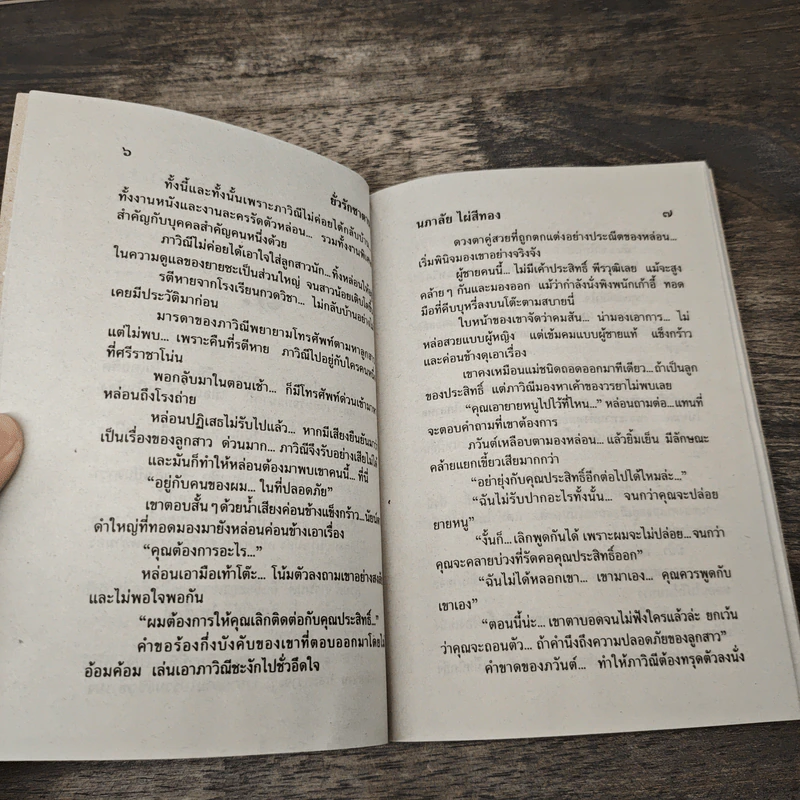 ๖
ยั่วรักซาตาน
ทั้งนี้และทั้งนั้นเพราะภาวิณีไม่ค่อยได้กลับบ้าน
ทั้งงานหนังและงานละครรัดตัวหล่อน... รวมทั้งงาน
สำคัญกับบุคคลสำคัญคนหนึ่งด้วย
ภาวิณีไม่ค่อยได้เอาใจใส่ลูกสาวนัก...ทิ้งหล่อนให้
ในความดูแลของยายซะเป็นส่วนใหญ่ จนสาวน้อยเติบโต
รตีหายจากโรงเรียนกวดวิชา... ไม่กลับบ้านอย่าง
เคยมีประวัติมาก่อน
มารดาของภาวิณีพยายามโทรศัพท์ตามหาลูกสาว
แต่ไม่พบ... เพราะคืนที่รตีหาย ภาวิณีไปอยู่กับใครคน
ที่ศรีราชาโน่น
พอกลับมาในตอนเช้า... ก็มีโทรศัพท์ด่วนเข้ามา
หล่อนถึงโรงถ่าย
หล่อนปฏิเสธไม่รับไปแล้ว... หากมีเสียงยืนยันมาว่า
เป็นเรื่องของลูกสาว ด่วนมาก... ภาวิณีจึงรับอย่างเสียไม่ได้
และมันก็ทำให้หล่อนต้องมาพบเขาคนนี้... ที่นี่
“อยู่กับคนของผม... ในที่ปลอดภัย”
เขาตอบสั้นๆ ด้วยน้ำเสียงค่อนข้างแข็งกร้าว...นัยน์ตา
ดำใหญ่ที่ทอดมองมายังหล่อนค่อนข้างเอาเรื่อง
“คุณต้องการอะไร...”
หล่อนเอามือเท้าโต๊ะ... โน้มตัวลงถามเขาอย่าง
และไม่พอใจพอกัน
“ผมต้องการให้คุณเลิกติดต่อกับคุณประสิทธิ์...”
คำขอร้องกึ่งบังคับของเขาที่ตอบออกมาโดยไม่
อ้อมค้อม เล่นเอาภาวิณีชะงักไปชั่วอึดใจ
นภาลัย ไผ่สีทอง
๗
ดวงตาคู่สวยที่ถูกตกแต่งอย่างประณีตของหล่อน...
เริ่มพินิจมองเขาอย่างจริงจัง
ผู้ชายคนนี้... ไม่มีเค้าประสิทธิ์ พีรวุฒิเลย แม้จะสูง
คล้ายๆ กันและมองออก แม้ว่ากำลังนั่งพิงพนักเก้าอี้ ทอด
มือที่คีบบุหรี่ลงบนโต๊ะตามสบายนี่
ใบหน้าของเขาจัดว่าคมสัน... น่ามองเอาการ... ไม่
หล่อสวยแบบผู้หญิง แต่เข้มคมแบบผู้ชายแท้ แข็งกร้าว
และค่อนข้างดุเอาเรื่อง
เขาคงเหมือนแม่ชนิดถอดออกมาทีเดียว...ถ้าเป็นลูก
ของประสิทธิ์ แต่ภาวิณีมองหาเค้าของวรยาไม่พบเลย
“คุณเอายายหนูไปไว้ที่ไหน...” หล่อนถามต่อ...แทนที่
จะตอบคำถามที่เขาต้องการ
ภวันต์เหลือบตามองหล่อน... แล้วยิ้มเย็น มีลักษณะ
คล้ายแยกเขี้ยวเสียมากกว่า
“อย่ายุ่งกับคุณประสิทธิ์อีกต่อไปได้ไหมล่ะ...”
“ฉันไม่รับปากอะไรทั้งนั้น... จนกว่าคุณจะปล่อย
ยายหนู”
“งั้นก็...เลิกพูดกันได้ เพราะผมจะไม่ปล่อย...จนกว่า
คุณจะคลายบ่วงที่รัดคอคุณประสิทธิ์ออก”
“ฉันไม่ได้หลอกเขา... เขามาเอง... คุณควรพูดกับ
เขาเอง”
“ตอนนี้น่ะ... เขาตาบอดจนไม่ฟังใครแล้วล่ะ ยกเว้น
ว่าคุณจะถอนตัว... ถ้าคำนึงถึงความปลอดภัยของลูกสาว”
คำขาดของภวันต์... ทำให้ภาวิณีต้องทรุดตัวลงนั่ง